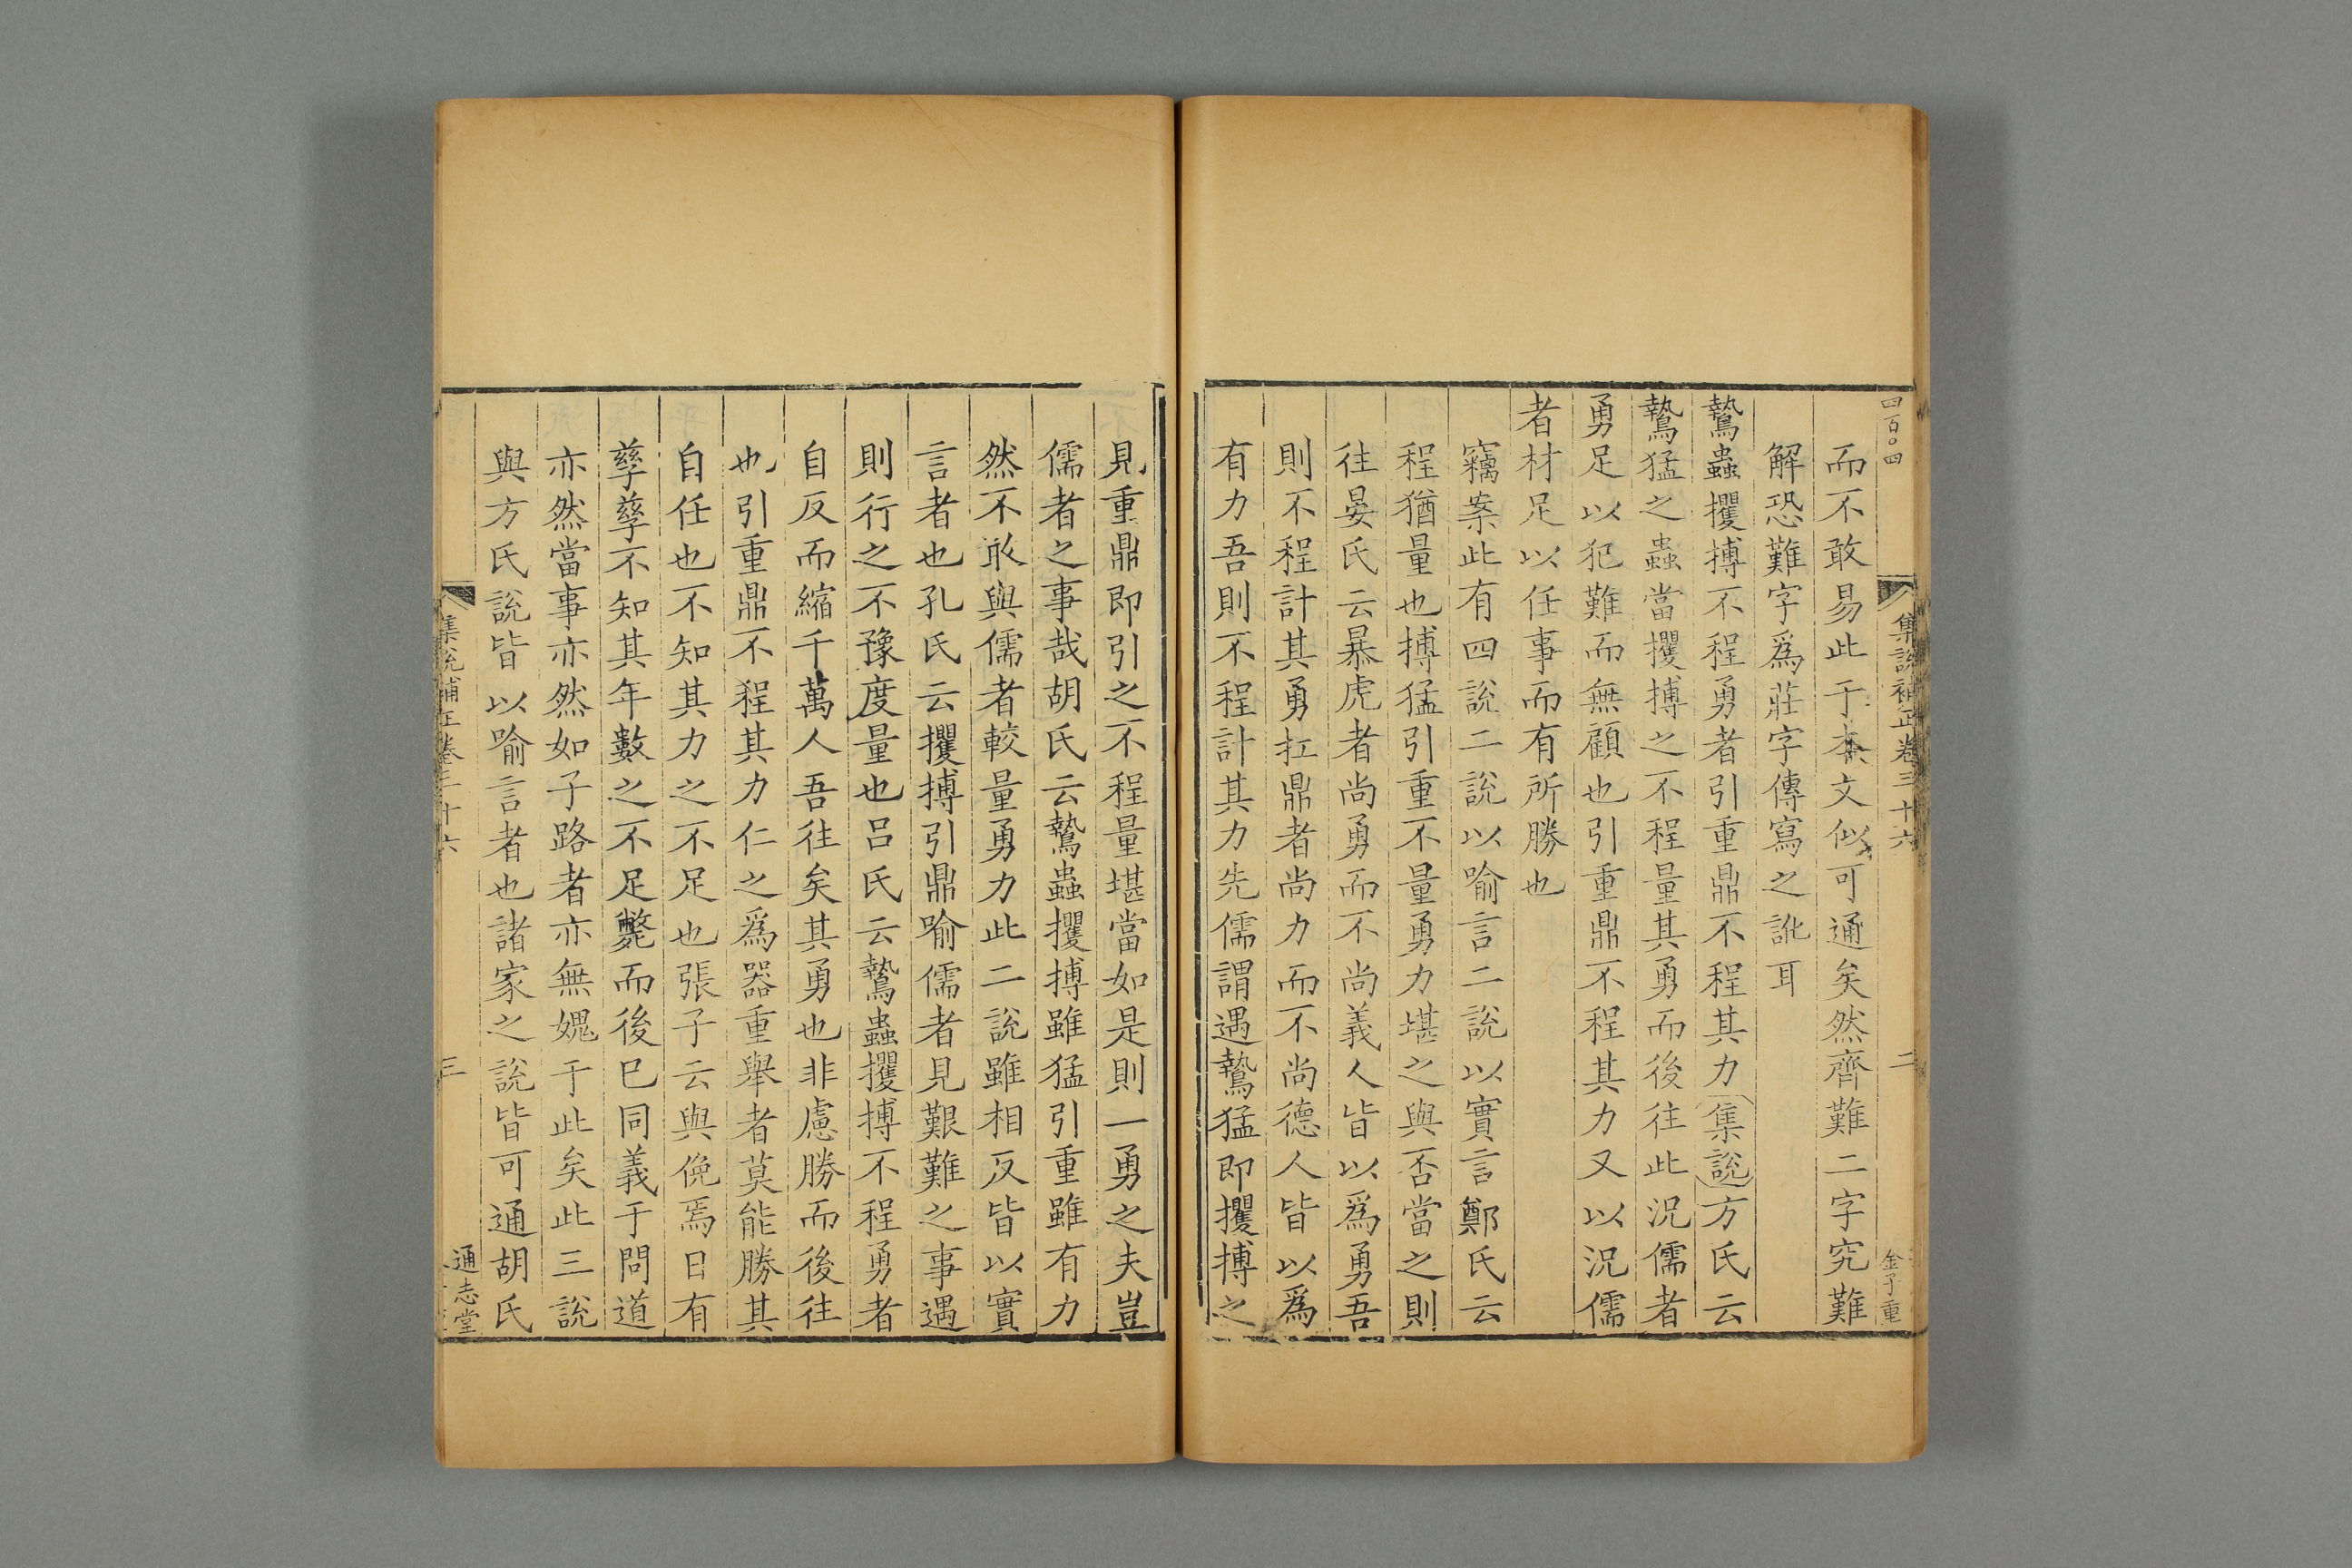 四百〇四
集說補正卷三十六
二
金子重
而不敢易此于本文似可通矣然齊難二字究難
解恐難字爲莊字傳寫之訛耳
鷙蟲攫搏不程勇者引重鼎不程其力集說方氏云
鷙猛之蟲當攫搏之不程量其勇而後往此況儒者
勇足以犯難而無顧也引重鼎不程其力又以況儒
者材足以任事而有所勝也
竊案此有四說二說以喻言二說以實言鄭氏云
程猶量也搏猛引重不量勇力堪之與否當之則
往晏氏云暴虎者尚勇而不尚義人皆以爲勇吾
則不程計其勇扛鼎者尚力而不尚德人皆以爲
有力吾則不程計其力先儒謂遇鷙猛即攫搏之
見重鼎即引之不程量堪當如是則一勇之夫豈
儒者之事哉胡氏云鷙蟲攫搏雖猛引重雖有力
然不敢與儒者較量勇力此二說雖相反皆以實
言者也孔氏云攫搏引鼎喻儒者見艱難之事遇
則行之不豫度量也呂氏云鷙蟲攫搏不程勇者
自反而縮千萬人吾往矣其勇也非慮勝而後往
也引重鼎不程其力仁之爲器重舉者莫能勝其
自任也不知其力之不足也張子云與俛焉日有
孳孳不知其年數之不足斃而後已同義于問道
亦然當事亦然如子路者亦無媿于此矣此三說
與方氏說皆以喻言者也諸家之說皆可通胡氏
集說補正卷三十六
三
通志堂